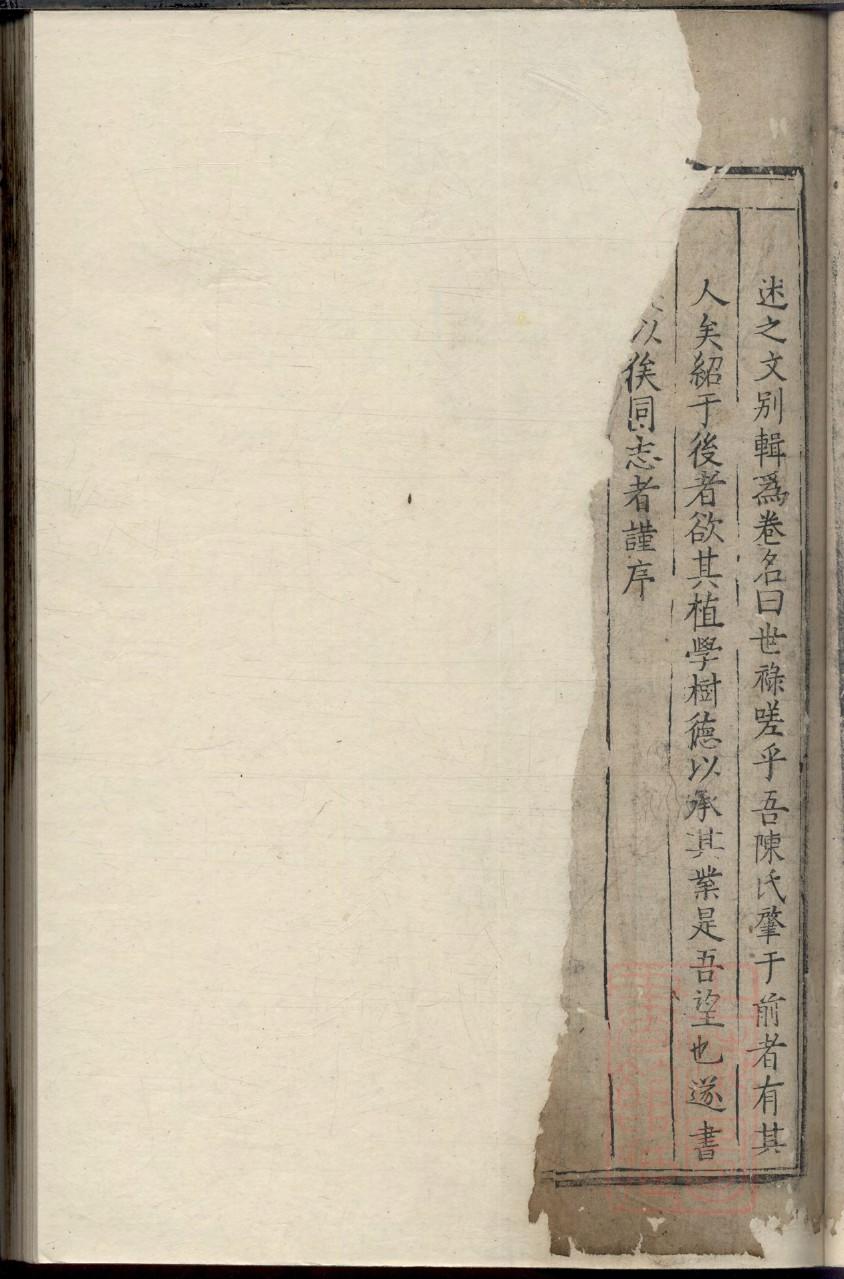 迷之文别輯爲卷名曰世祿嗟乎吾陳氏肇于前者有其
人矣紹于後者欲其植學樹德以承其業是吾望也遂書
以俟同志者謹序